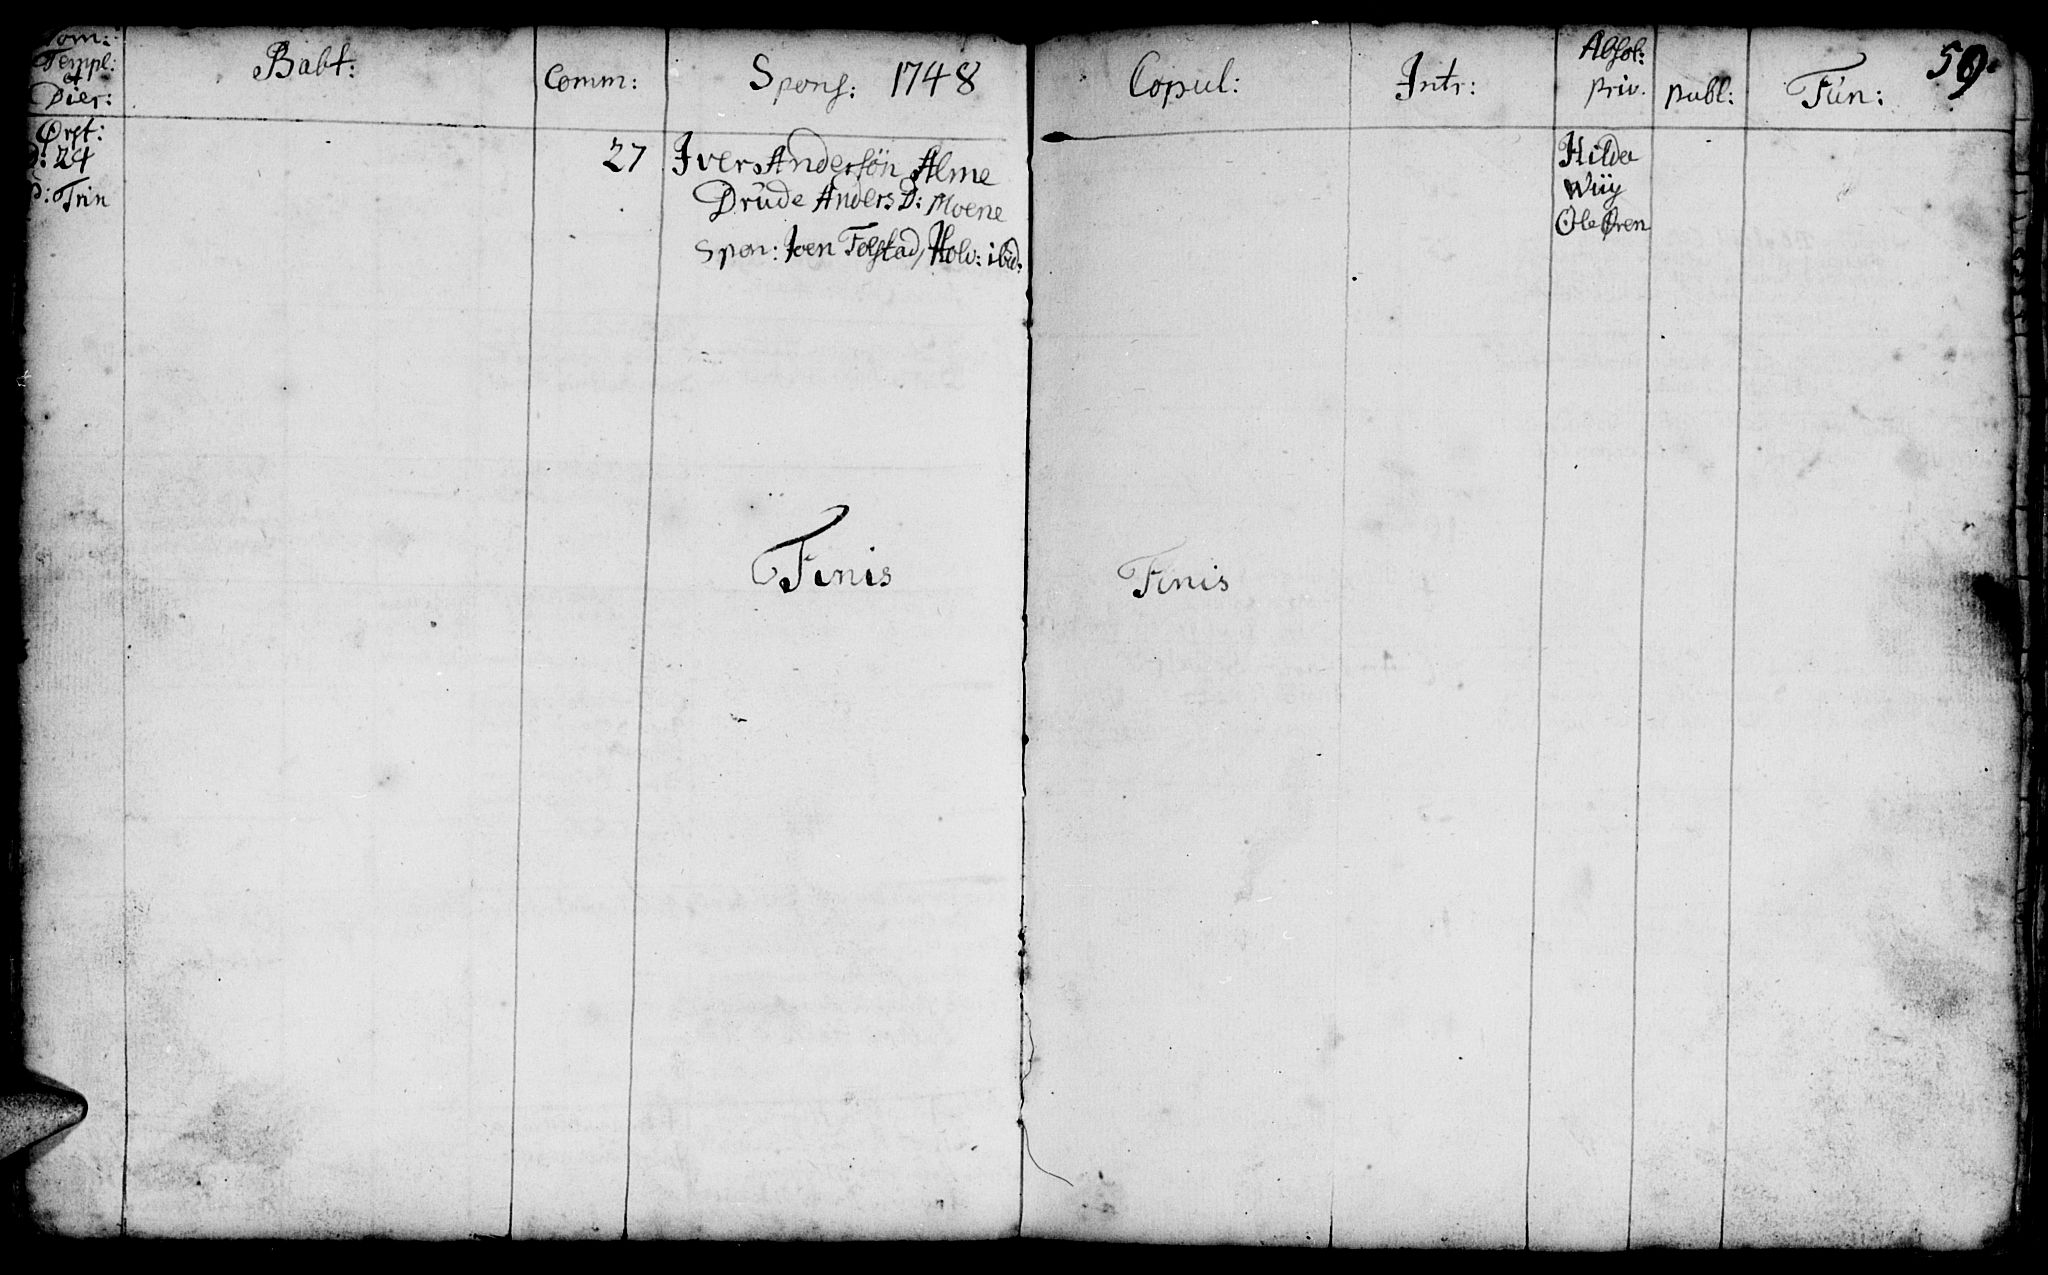 Nom:
Templ:
et
Dier:
Babt:
Comm:
Spons: 1748
Copul:
Intr:
Absol:
priv.
publ:
Fun:
59.
Øret:
D: 24
p: Trin
27
Iver Andersøn Alme
Drude Anders D: Moene
Spon: Joen Folstad, Hol: ibid:
Hilda
Wüy
Ole Øren
Finis
Finis